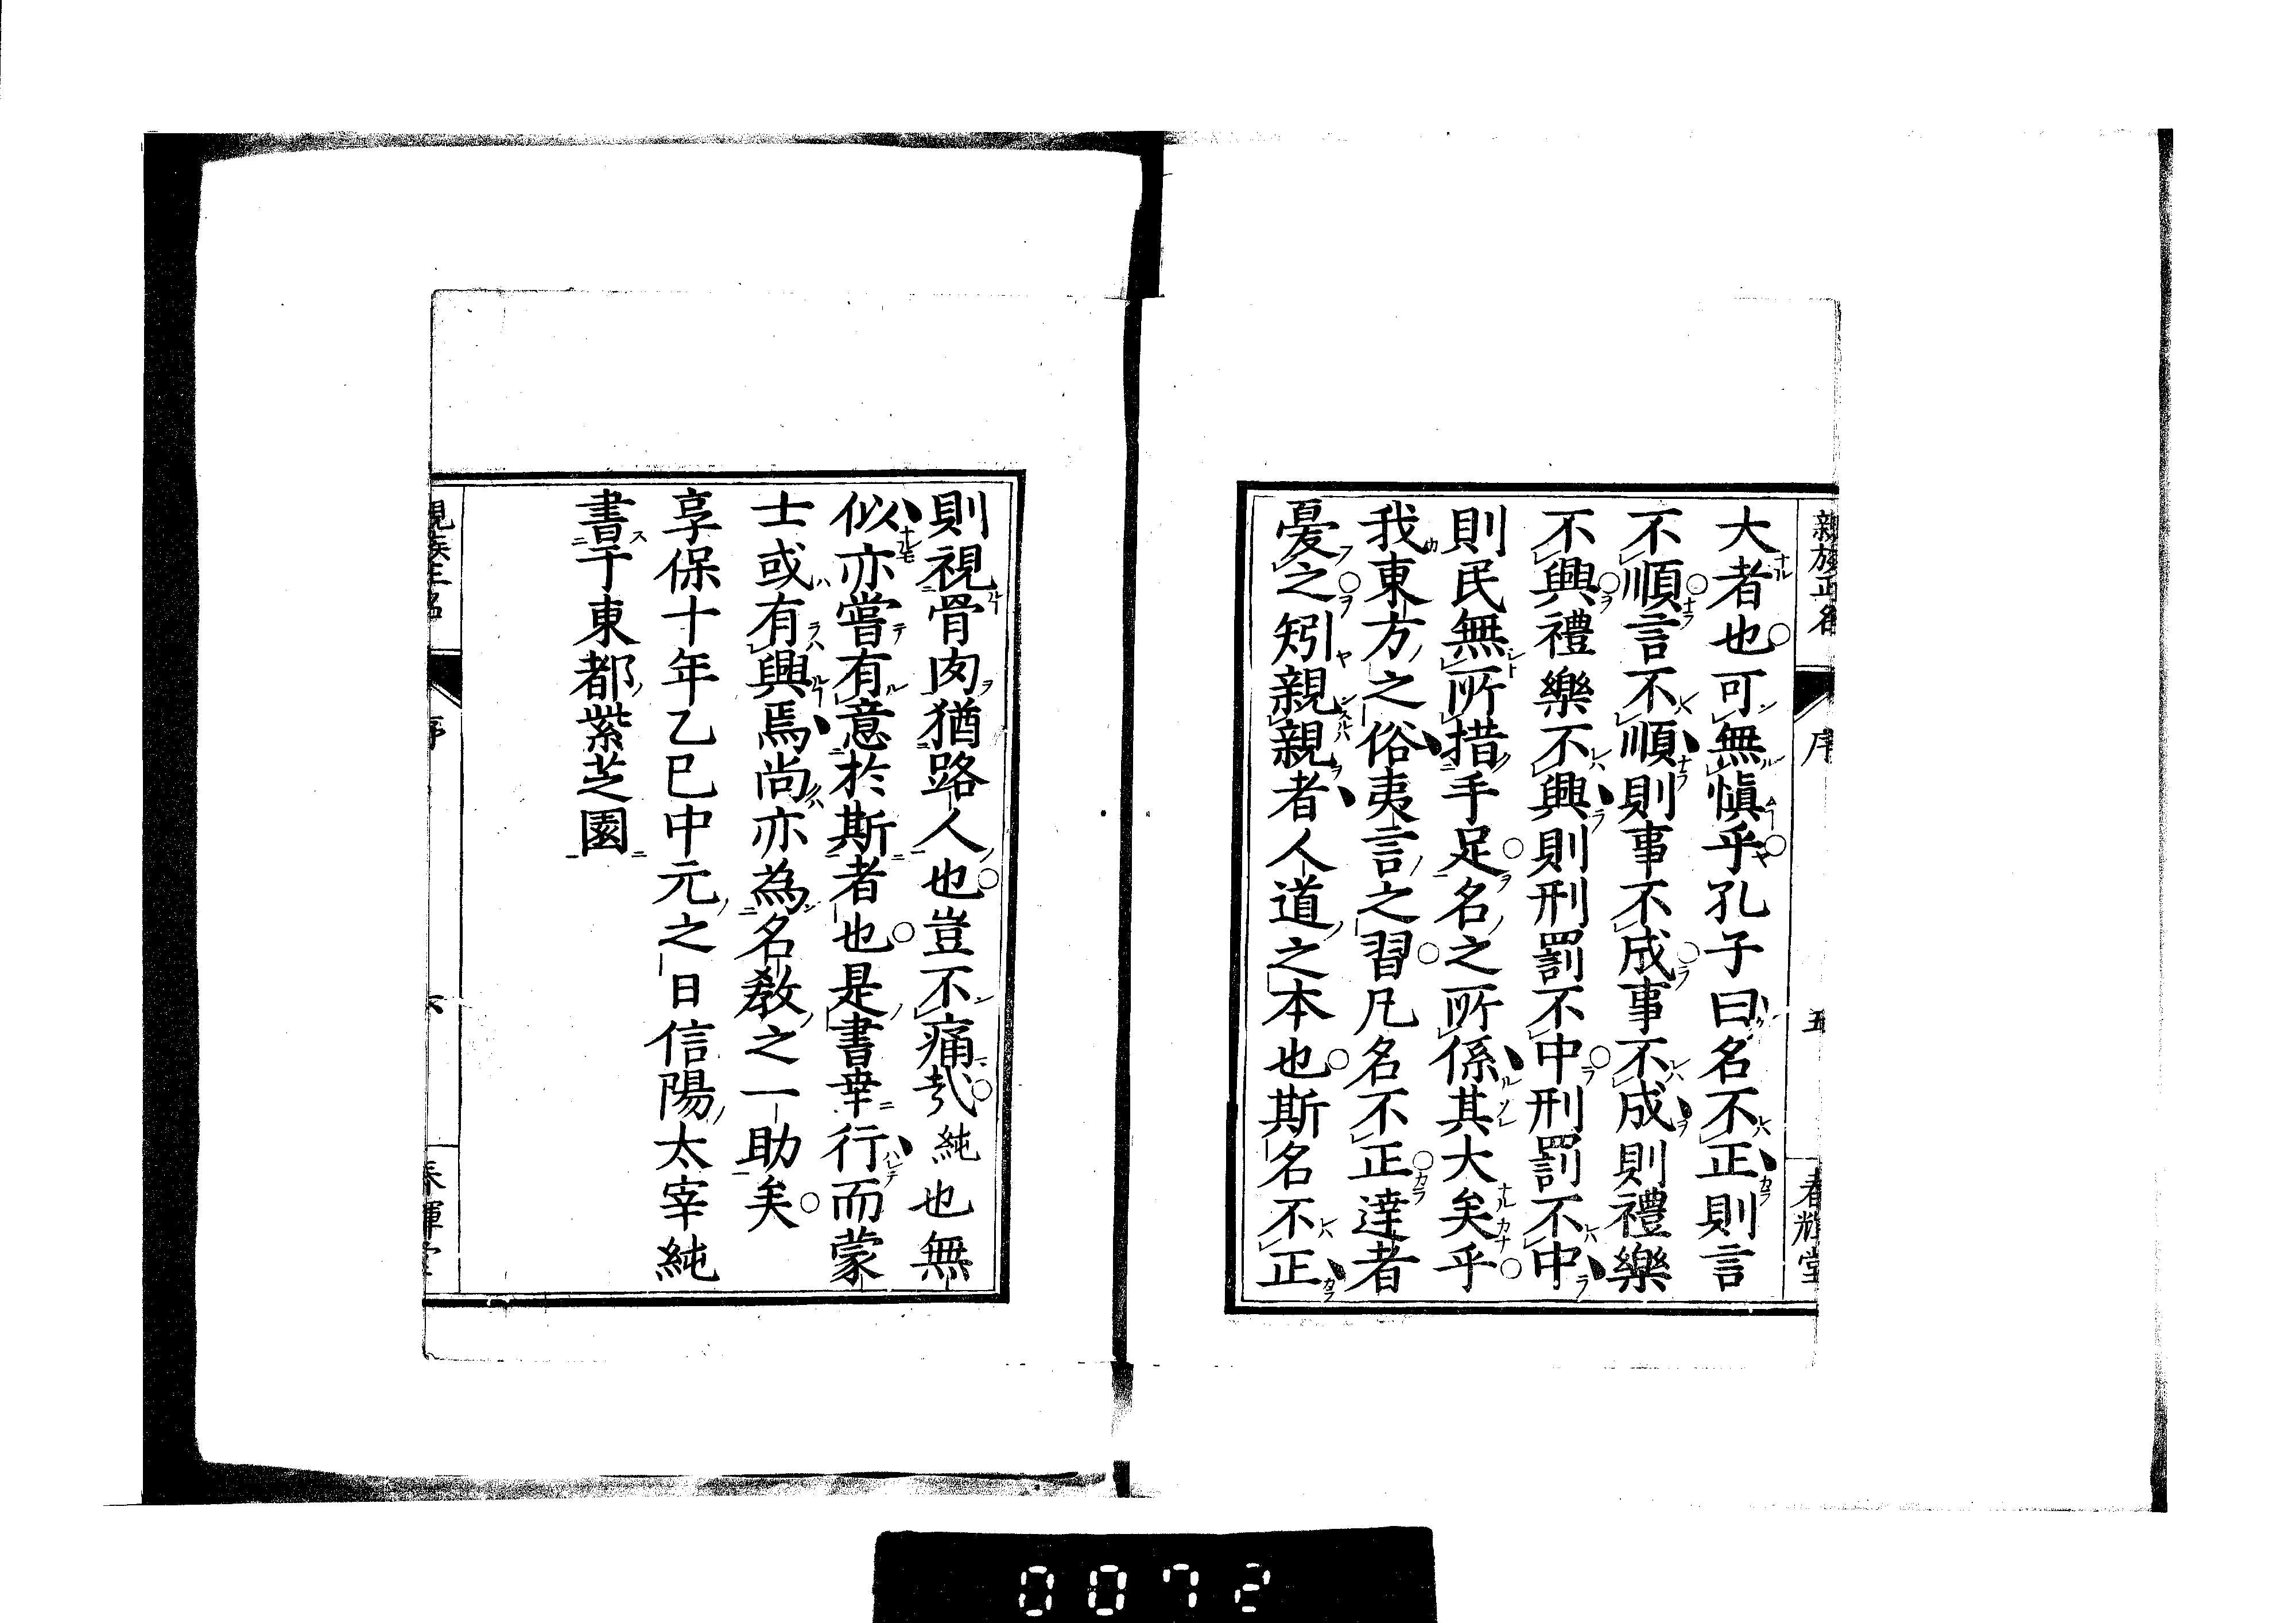 親族正名 序 五 春輝堂
大者也可無愼乎孔子曰名不正則言
不順言不順則事不成事不成則禮樂
不興禮樂不興則刑罰不中刑罰不中
則民無所措手足名之所係其大矣乎
我東方之俗夷言之習凡名不正達者
憂之矧親親者人道之本也斯名不正
則視骨肉猶路人也豈不痛哉純也無
似亦嘗有意於斯者也是書幸行而蒙
士或有興焉尚亦為名教之一助矣
享保十年乙巳中元之日信陽太宰純
書于東都紫芝園
親族正名 序 六 春輝堂
0072